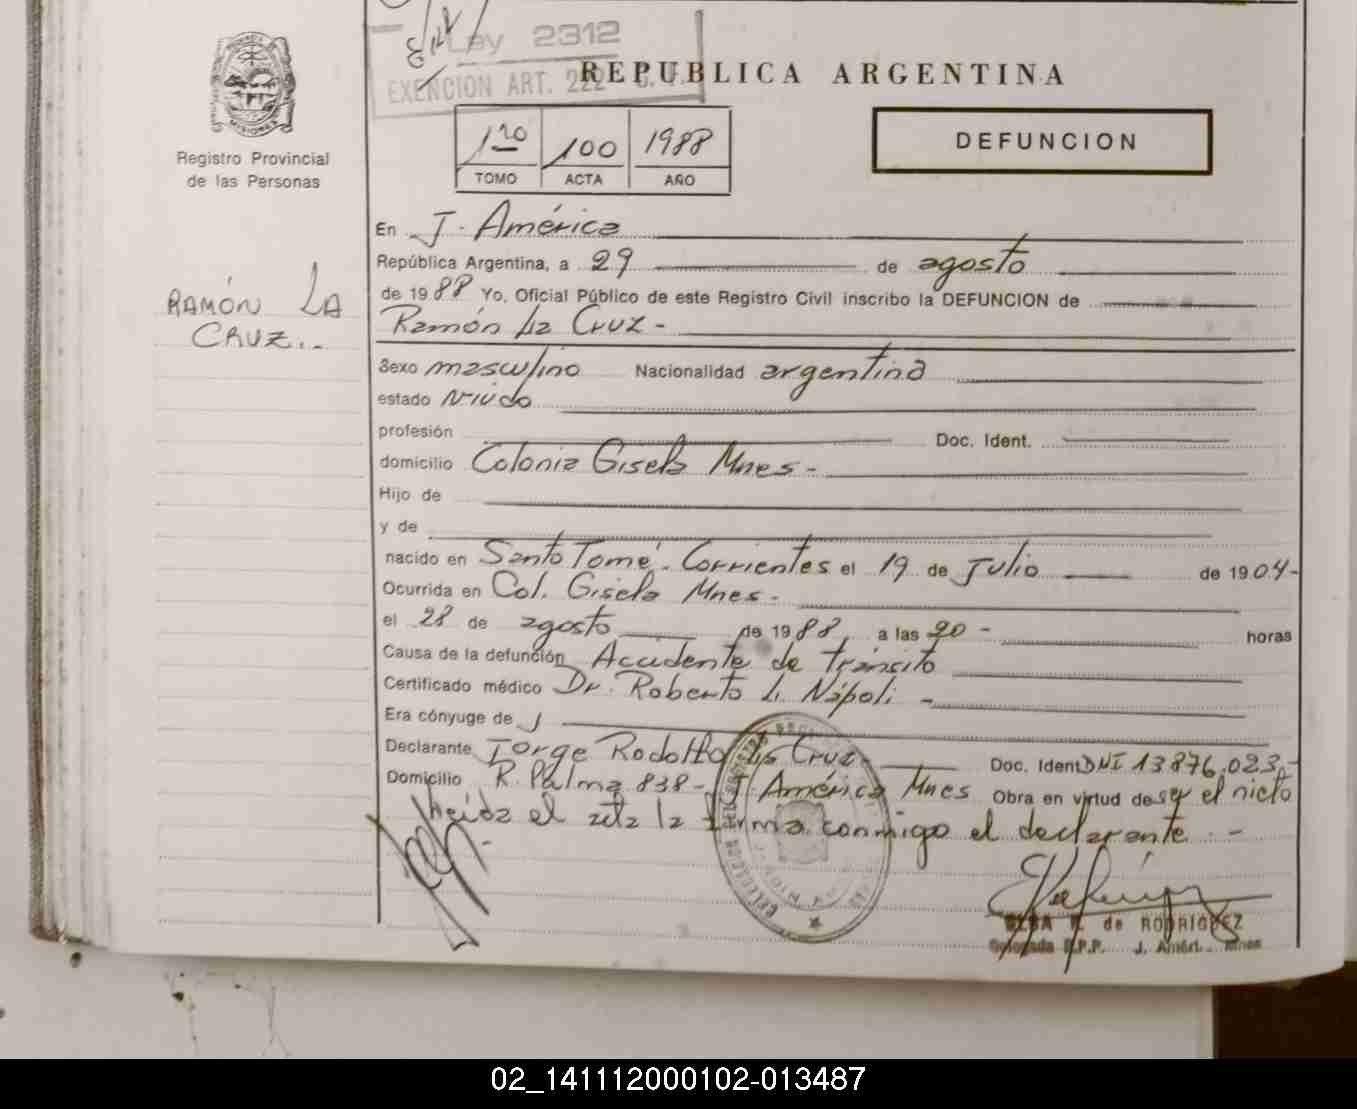 Ley 2312
EXENCION ART. 222
REPUBLICA ARGENTINA
MISIONES
Registro Provincial
de las Personas
1ro 100 1988
TOMO ACTA AÑO
DEFUNCION
En J. América
República Argentina, a 29 de agosto
de 1988 Yo, Oficial Público de este Registro Civil inscribo la DEFUNCION de
RAMÓN LA
CRUZ...
Ramón La Cruz -
Sexo masculino Nacionalidad argentina
estado Viudo
profesión Doc. Ident.
domicilio Colonia Gisela Mnes -
Hijo de
y de
nacido en Santo Tomé - Corrientes el 19 de Julio de 1904-
Ocurrida en Col. Gisela Mnes -
el 28 de agosto de 1988 a las 20 - horas
Causa de la defunción Accidente de tránsito
Certificado médico Dr. Roberto Li Nápoli -
Era cónyuge de
Declarante Jorge Rodolfo La Cruz Doc. Ident DNI 13.876.023.-
Domicilio R. Palma 838 - J. América Mnes Obra en virtud de ser el nieto
Leída el acta la firma conmigo el declarante . -
de RODRIGUEZ
Delegada R.P.P. J. Amér. Mnes
02_141112000102-013487